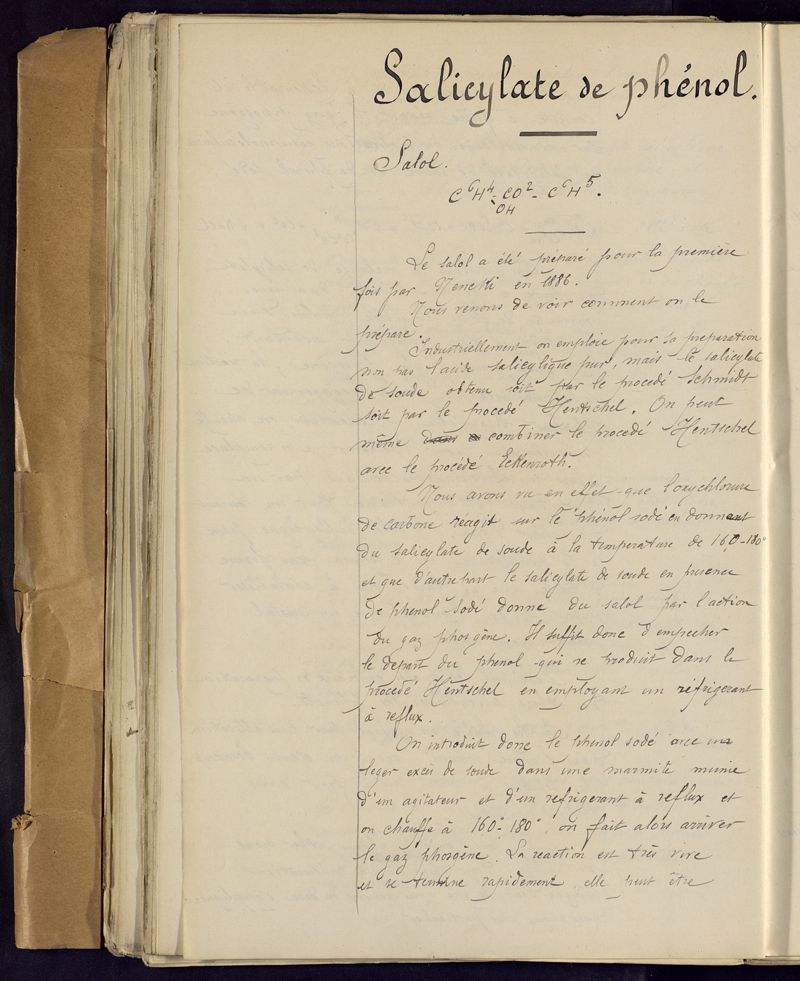 Salicylate de phénol.
Salol.
C⁶H⁴-CO²-C⁶H⁵.
OH
Le salol a été préparé pour la première
fois par Nencki en 1886.
Nous venons de voir comment on le
prépare.
Industriellement on emploie pour sa preparation
non pas l'acide salicylique pur, mais le salicylate
de soude obtenu soit par le procedé Schmidt
soit par le procedé Hentschel. On peut
même combiner le procedé Hentschel
avec le procédé Eckenroth.
Nous avons vu en effet que l'oxychlorure
de carbone réagit sur le phénol sodé en donnant
du salicylate de soude à la temperature de 160-180°
et que d'autre part le salicylate de soude en presence
de phenol sodé donne du salol par l'action
du gaz phosgène. Il suffit donc d'empecher
le depart du phenol qui se produit dans le
procedé Hentschel en employant un réfrigerant
à reflux.
On introduit donc le phenol sodé avec un
leger excès de soude dans une marmite munie
d'un agitateur et d'un refrigerant à reflux et
on chauffe à 160°-180° on fait alors arriver
le gaz phosgène. La reaction est très vive
et se termine rapidement elle peut être